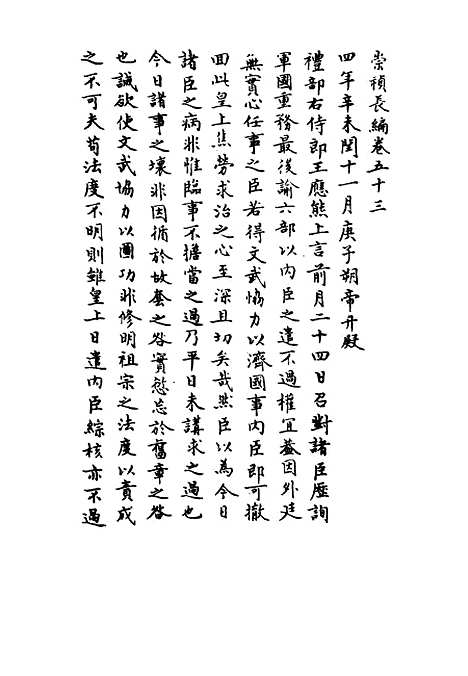 崇禎長編卷五十三
四年辛未閏十一月庚子朔帝升殿
禮部右侍郎王應熊上言前月二十四日召對諸臣歷詢
軍國重務最後諭六部以內臣之遣不過權宜蓋因外廷
無實心任事之臣若得文武恊力以濟國事內臣即可撤
回此皇上焦勞求治之心至深且切矣哉然臣以為今日
諸臣之病非惟臨事不擔當之過乃平日未講求之過也
今日諸事之壞非因循於故套之咎實愆忘於舊章之咎
也誠欲使文武協力以圖功非修明祖宗之法度以責成
之不可夫茍法度不明則雖皇上日遣內臣綜核亦不過